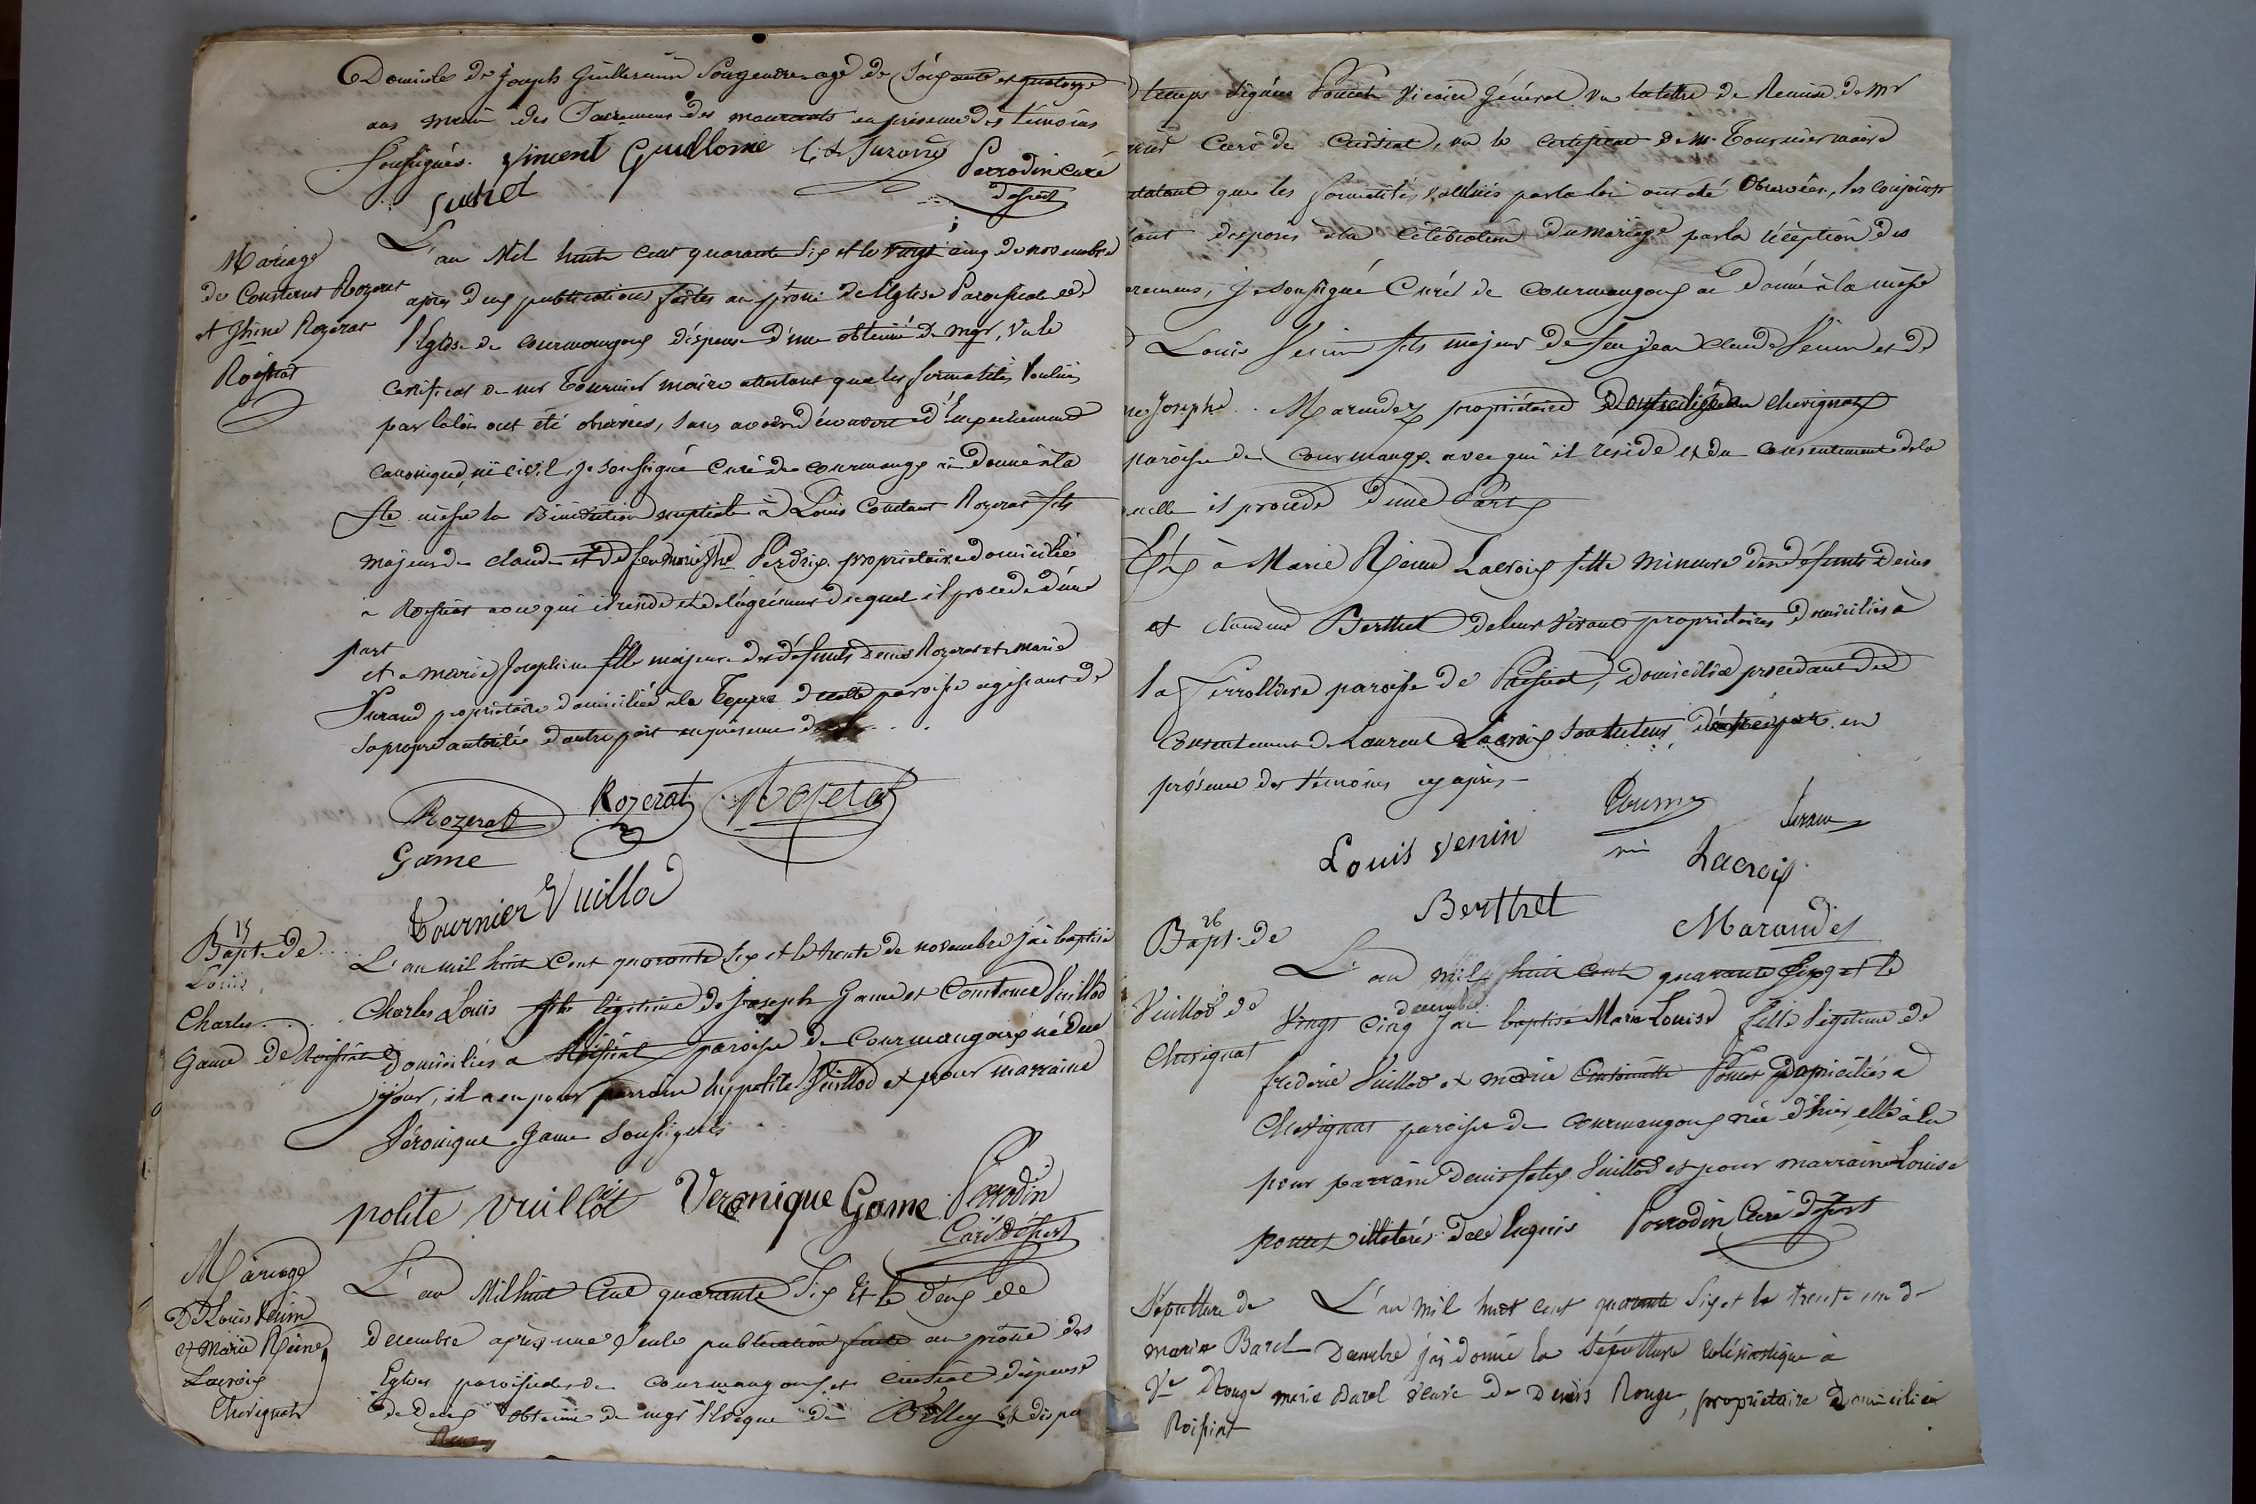 Domicile de Joseph Guillermin son gendre agé de soixante et quatorze
ans muni des Sacremens des mourants en présence des témoins
Soussignés. Vincent Guillome Perrodin Curé
Sutret desert
Mariage
de Constant Rozerat
et Jhine Rozerat
Roissiat
L'an Mil huit cent quarante six et le vingt cinq de novembre
après deux publications faites au prône de l'Eglise Paroissiale de
l'Eglise de Courmangoux dispense d'une obtenue de mgr, Vu le
certificat de mr Tournier maire attestant que les formalités voulues
par la loi ont été observées, sans avoir découvert d'Empechement
canonique, ni civil, je soussigné Curé de Courmangx ai donné à la
Ste messe la Bénédiction nuptiale à Louis Constant Rozerat fils
majeur de claude et de feu marie Jhe Perdrix propriétaire domicilié
à Roissiat avec qui il reside et de l'agrément duquel il procede d'une
part
et a marie Josephine fille majeure des défunts Denis Rozerat et marie
Durand propriétaire domiciliée à la Teppe de cette paroisse agissant de
sa propre autorité d'autre part en présence de
Rozerat Rozerat Rozerat
Game
Tournier Vuillod
15
Bapt. de
Louis
Charles
Game de Roissiat
L'an mil huit Cent quarante six et le trente de novembre j'ai baptisé
Charles Louis fils légitime de Joseph Game et Constance Vuillod
domiciliés a Roissiat paroisse de Courmangoux né du
jour, il a eu pour parrain hyppolite Vuillod et pour marraine
Véronique Game Soussignés
polite vuillot Veronique Game Perrodin
Curé desert
Mariage
De Louis Venin
et Marie Reine
Lacroix
Chevignat
L'an Mil huit Cent quarante Six Et le deux de
decembre après une seule publication faite au prône des
Eglises paroissiales de Courmangoux et Cuisiat dispense
de deux obtenue de mgr l'Eveque de Belley et dispe
temps signée Poncet Vicaire Général. Vu la lettre de Remise de Mr
Curé de Cuisiat, vu le certificat de Mr Tournier maire
que les formalités voulues par la loi ont été Observées, les conjoints
disposés à la Célébration du mariage par la réception des
je soussigné Curé de Courmangoux ai donné à la messe
Louis Venin fils majeur de feu jean Claude Venin et de
Josephe Marandet propriétaire domicilié à Chevignat
paroisse de Courmangx avec qui il réside et du consentement de la
il procede d'une Part
Et à Marie Reine Lacroix fille mineure des défunts Denis
et Berthet de leur vivant propriétaires domiciliés à
paroisse de domiciliée procedant du
consentement de Laurent Lacroix son tuteur d'autre part en
présence des témoins cy après
Louis Venin
Lacroix
Berthet Marandet
26
Bapt. de
Vuillod de
Chevignat
L'an mil huit Cent quarante Six et le
decembre
Vingt Cinq j'ai baptisé Marie Louise fille légitime de
frederic Vuillod et marie Antoinette Poncet domiciliés a
Chevignat paroisse de Courmangoux née d'hier, elle a eu
pour parrain Denis felix Vuillod et pour marraine Louise
Poncet illeterés de ce Requis Perrodin Curé desert
Sépulture de
marie Barel
Ve Rouge
Roissiat
L'an Mil huit cent quarante Six et le trente un de
Decembre j'ai donné la Sépulture eclésiastique à
marie Barel veuve de Denis Rouge, propriétaire domiciliée à